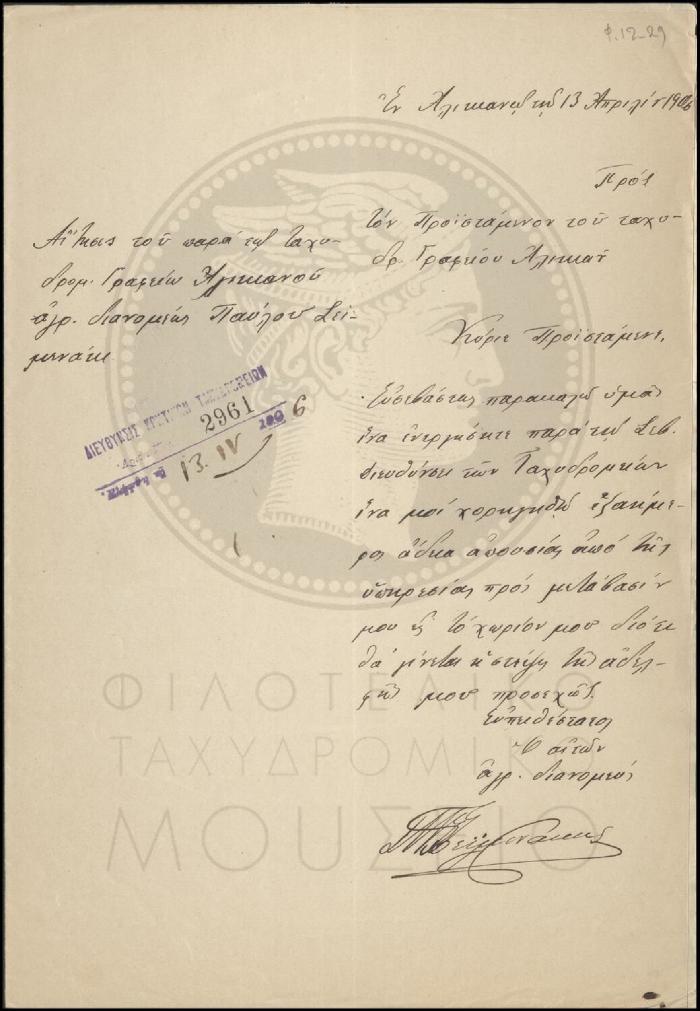 Φ.12-29
Ἐν Ἀλικιανῷ τῇ 13 Ἀπριλίου 1906
Πρὸς
τὸν Προϊστάμενον τοῦ ταχυ-
δρ. Γραφείου Ἀλικιαν
Αἴτησις τοῦ παρὰ τῷ ταχυ-
δρομ. Γραφείῳ Ἀλικιανοῦ
ἀγρ. διανομέως Παύλου Σει-
μενάκη
Κύριε Προϊστάμενε,
ΔΙΕΥΘΥΝΣΙΣ ΚΡΗΤΙΚΩΝ ΤΑΧΥΔΡΟΜΕΙΩΝ
2961
13. IV 1906
Εὐσεβάστως παρακαλῶ ὑμᾶς
ἵνα ἐνεργήσητε παρὰ τῇ Σεβ.
Διευθύνσει τῶν Ταχυδρομείων
ἵνα μοὶ χορηγηθῇ ἑξαήμε-
ρος ἄδεια ἀπουσίας ἀπὸ τῆς
ὑπηρεσίας πρὸς μετάβασίν
μου εἰς τὸ χωρίον μου διότι
θὰ γίνεται ἡ στέψις τῆς ἀδελ-
φῆς μου προσεχῶς.
Εὐπειθέστατος
Ὁ αἰτῶν
ἀγρ. διανομεύς
ΦΙΛΟΤΕΛΙΚΟ
ΤΑΧΥΔΡΟΜΙΚΟ
ΜΟΥΣΕΙΟ